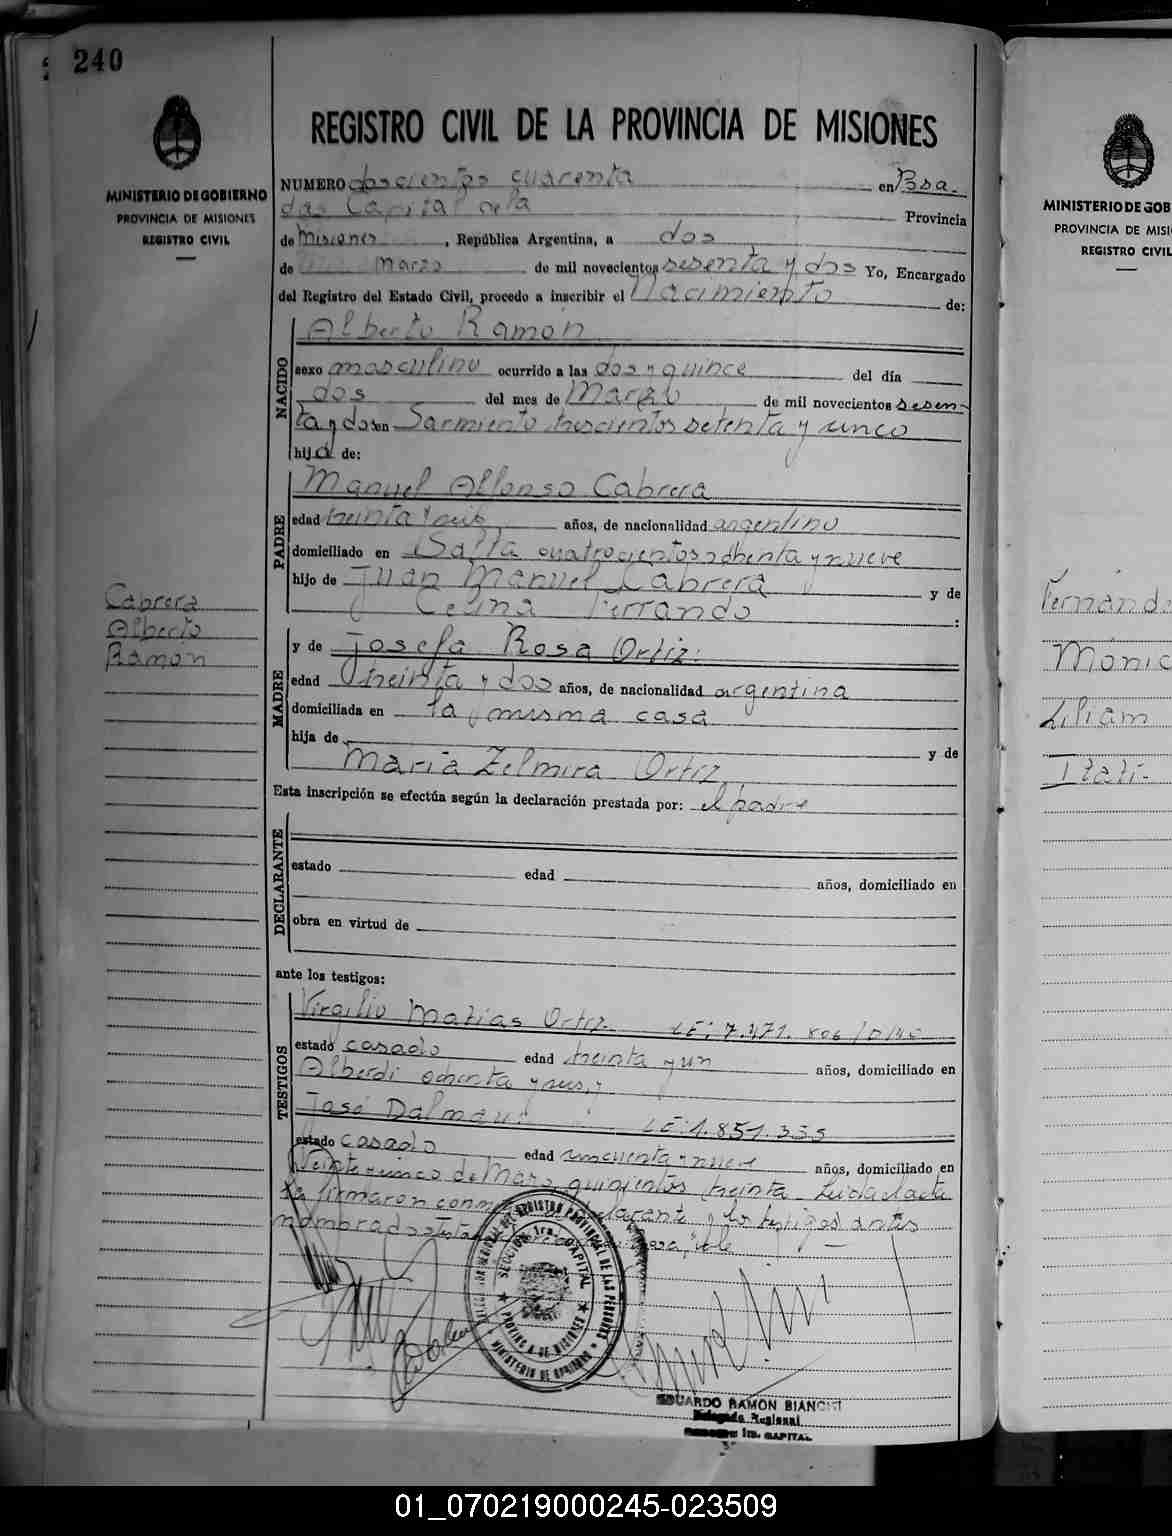 240
MINISTERIO DE GOBIERNO
PROVINCIA DE MISIONES
REGISTRO CIVIL
Cabrera
Alberto
Ramón
REGISTRO CIVIL DE LA PROVINCIA DE MISIONES
NUMERO doscientos cuarenta en Psa.
das Capital de la Provincia
de Misiones, República Argentina, a dos
de Marzo de mil novecientos sesenta y dos Yo, Encargado
del Registro del Estado Civil, procedo a inscribir el Nacimiento de:
NACIDO
Alberto Ramón
sexo masculino ocurrido a las dos y quince del día
dos del mes de Marzo de mil novecientos sesen-
ta y dos en Sarmiento trescientos setenta y cinco
hijo de:
PADRE
Manuel Alfonso Cabrera
edad treinta y años, de nacionalidad argentino
domiciliado en Salta cuatrocientos ochenta y nueve
hijo de Juan Manuel Cabrera y de
Celina Ferrando :
MADRE
y de Josefa Rosa Ortiz.
edad treinta y dos años, de nacionalidad argentina
domiciliada en la misma casa
hija de y de
María Zelmira Ortiz
Esta inscripción se efectúa según la declaración prestada por: el padre
DECLARANTE
estado edad años, domiciliado en
obra en virtud de
ante los testigos:
TESTIGOS
Virgilio Matias Ortiz LE: 7.471.806
estado casado edad treinta y un años, domiciliado en
Alberdi ochenta y
José Dalmau LE: 1.851.335
estado casado edad cincuenta y nueve años, domiciliado en
Veinticinco de Mayo quinientos treinta - Leida el acta
la firmaron conmigo declarante y los testigos antes
nombrados
SECCION 1ra. CAPITAL
PROVINCIA DE MISIONES
MINISTERIO DE GOBIERNO
REGISTRO PROVINCIAL DE LAS PERSONAS
EDUARDO RAMON BIANCHI
Delegado Regional
1ra. CAPITAL
MINISTERIO DE GOB
PROVINCIA DE MISI
REGISTRO CIVIL
Fernánd
Mónic
Liliam
Itatí-
01_070219000245-023509